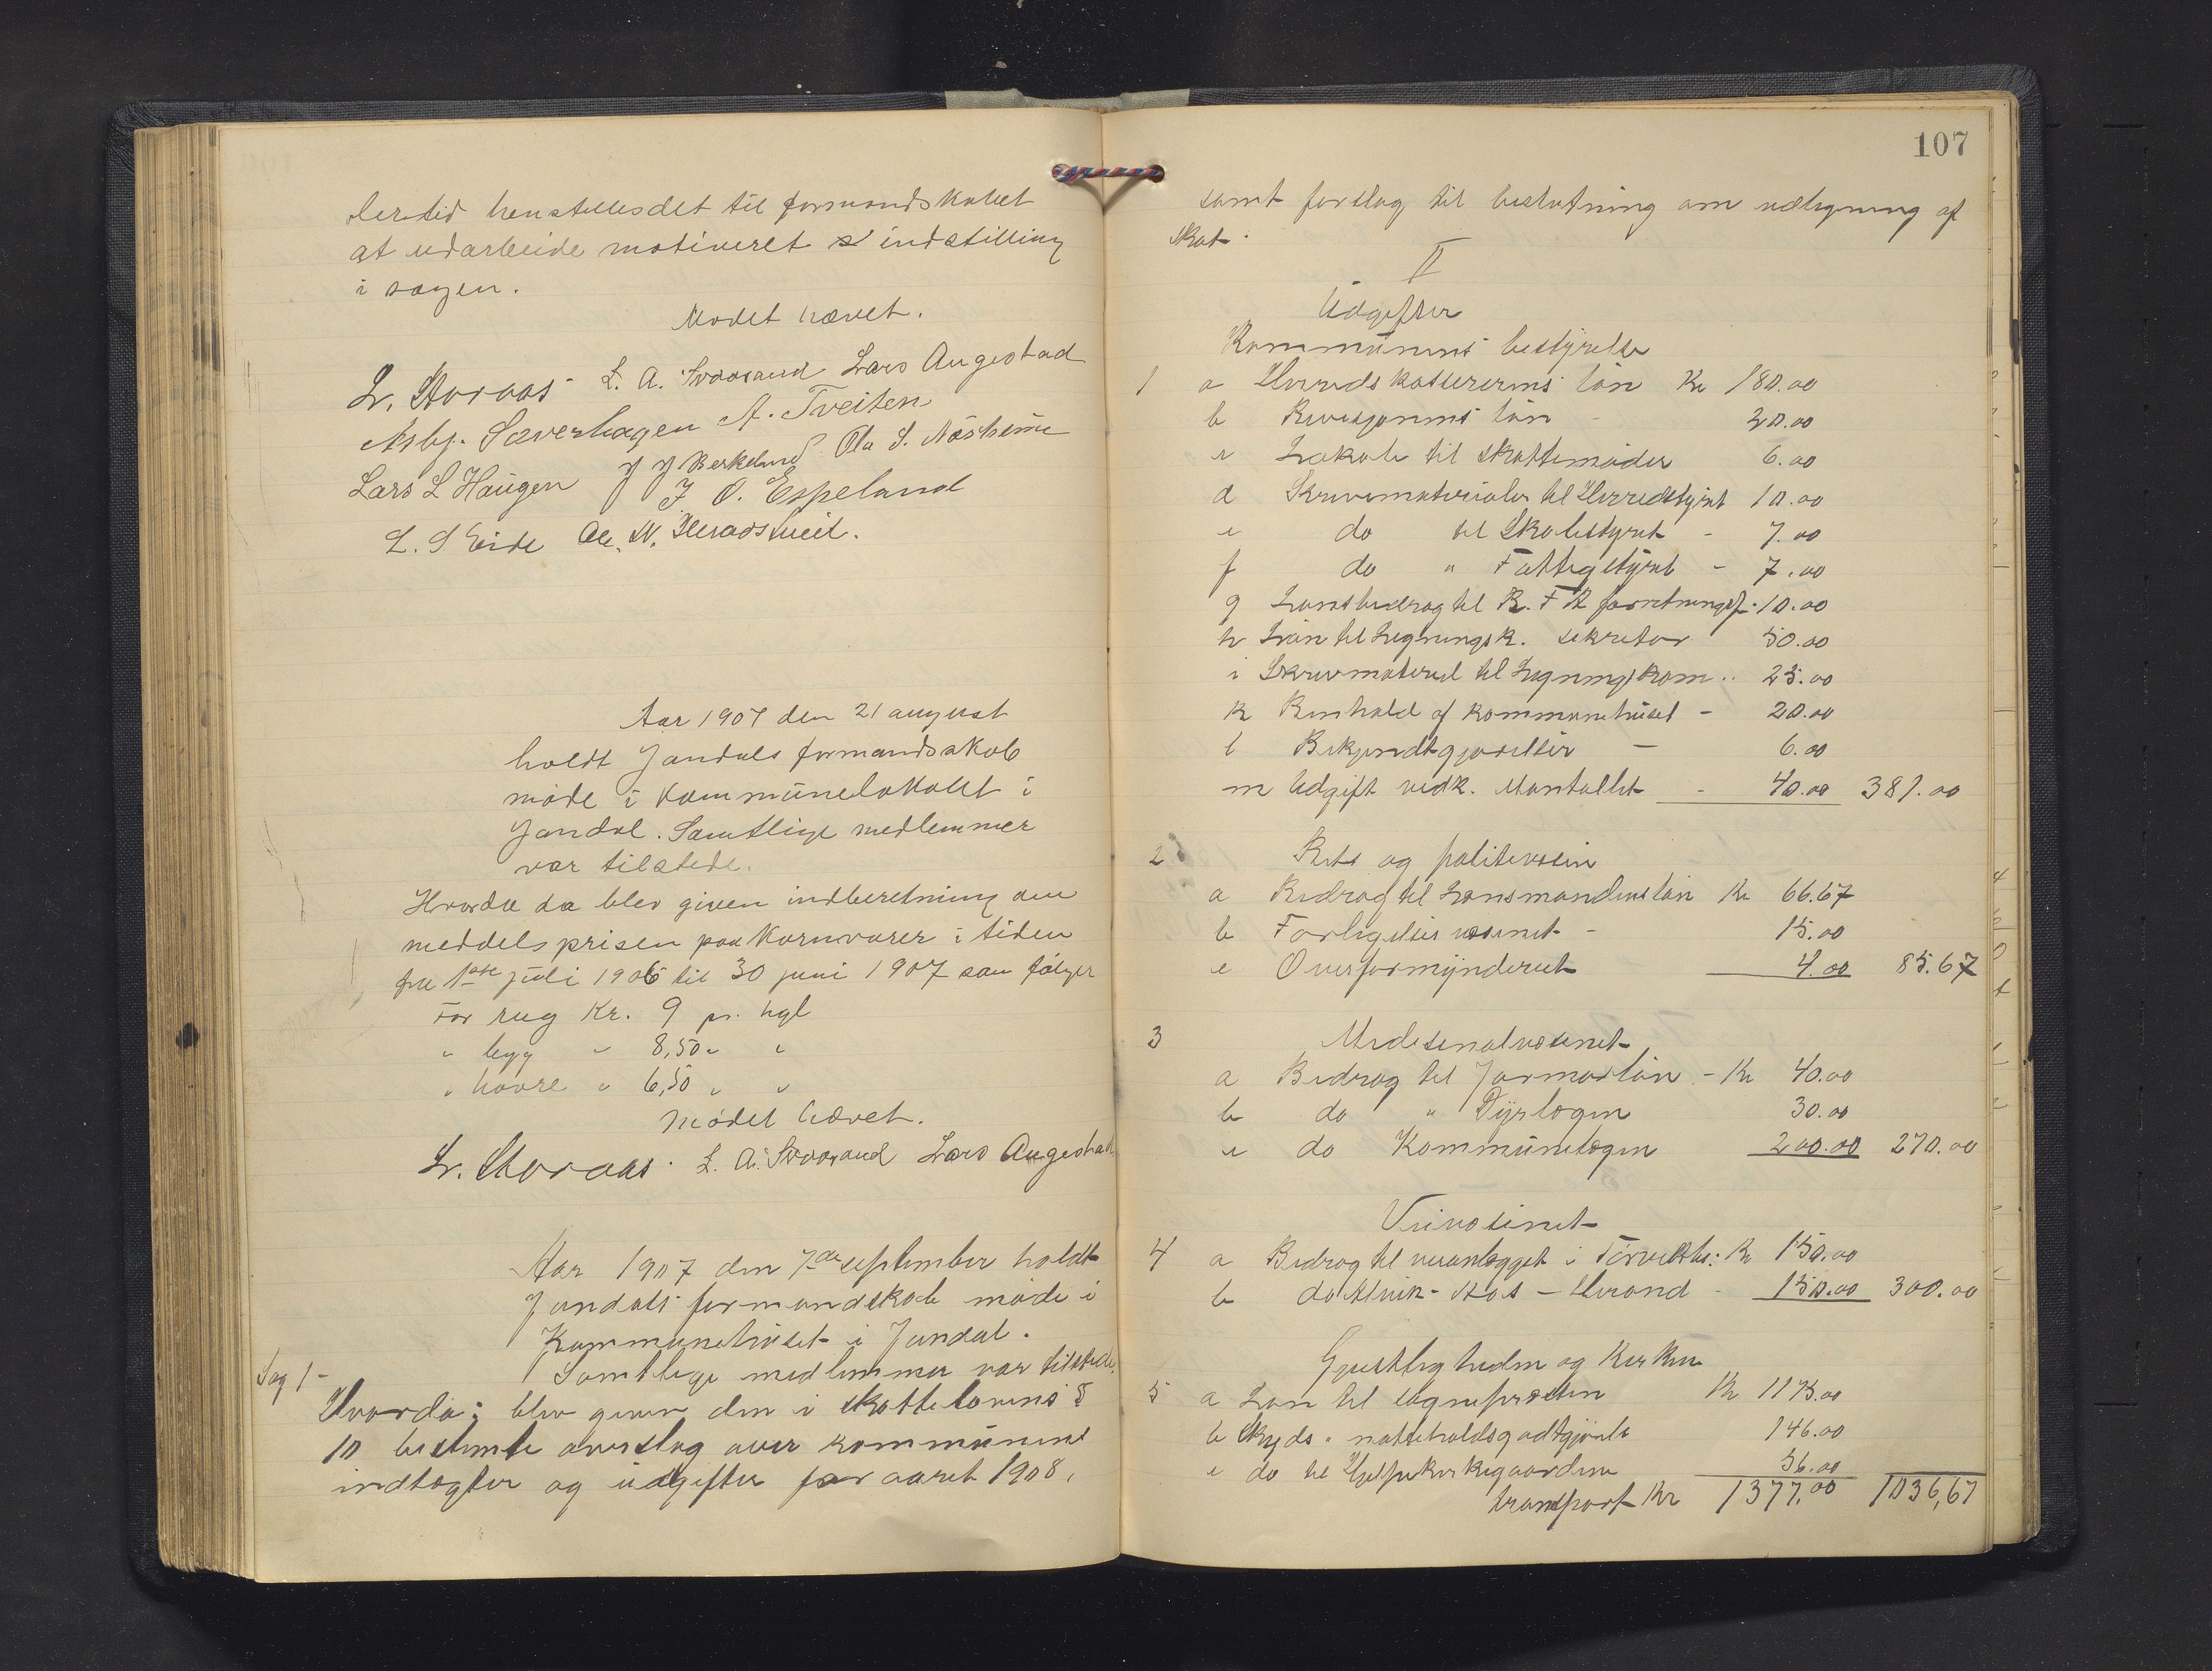 dertid henstillesdet til formandskabet
at udarbeide motiveret indstilling
i sagen.
Mødet hævet.
Lr. Storaas L. A. Svaasand Lars Augestad
Asbj. Sæverhagen A. Tveiten
Lars L Haugen J J Berkeland Ola S. Næsheim
J. O. Espeland
L. S Eide Ole N. Heradstveit.
Aar 1907 den 21 august
holdt Jondals formandsskab
møde i kommunelokalet i
Jondal. Samtlige medlemmer
var tilstede.
Hvorda da blev given indberetning om
meddelsprisen paa Kornvarer i tiden
fra 1ste juli 1906 til 30 juni 1907 som følger
For rug Kr. 9 pr. hgl
" bygg " 8,50 " "
" havre " 6,50 " "
Mødet hævet.
Lr. Storaas. L. A. Svaasand Lars Augestad
Aar 1907 den 7de september holdt
Jondals formandskab møde i
Kommunehuset i Jondal.
Samtlige medlemmer var tilstede.
Sag 1-
Hvorda: blev given den i skattelovens §
10 bestemte overslag over kommunens
indtægter og udgifter for aaret 1908,
107
samt forslag til beslutning om udligning af
skat.
II
Udgifter
Kommunens bestyrelse
1 a Herredskassererens løn Kr 180.00
b Revisjonens løn - 20.00
c Lokale til skattemøder 6.00
d Skrivematerialer til Herredstyret 10.00
e do til Skolestyret - 7.00
f do " Fattigstyret - 7.00
g Lønsbidrag til K. F R forretningsf. 10.00
h Løn til Ligningsk. sekretær 50.00
i Skrivmateriel til Ligningskom .. 25.00
k Renhold af kommunehuset - 20.00
l Bekjendtgjørelser - 6.00
m Udgift vedk. Mantallet - 40.00 381.00
2 Rets og politivesen
a Bidrag til Lensmandens løn Kr 66.67
b Forligelsesvæsenet - 15.00
c Overformynderiet 4.00 85.67
3 Medisinalvæsenet
a Bidrag til Jormorløn - Kr 40.00
b do " Dyrlægen 30.00
c do Kommunelægen 200.00 270.00
Veivæsenet
4 a Bidrag til veianlægget i Torvikbs: Kr 150.00
b do Alvik - Aas - Herand - 150.00 300.00
Gjeistligheden og Kirken
5 a Løn til sognepræsten Kr 1175.00
b Skyds " natteholdsgodtgjørelse 146.00
c do til Hjelpekirkegaardene 56.00
transport Kr 1377,00 1036,67